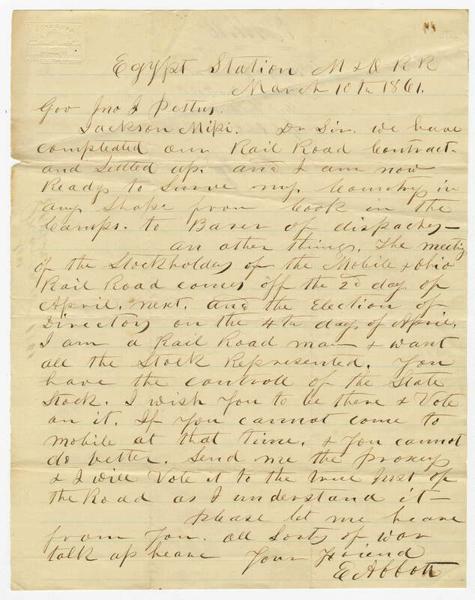 Egypt Station M & O R R
March 10th 1861.
Gov Jno J Pettus.
Jackson Mipi. Dr Sir. we have
compleated our Rail Road Contract
and Settled up. and I am now
Ready to Surve my Country in
any Shape from Cook in the
Camps. to Barer of dispaches—
an other thing. The meeting
of the Stockholders of the Mobile & Ohio
Rail Road comes off the 2d day of
April. next. and the Election of
Directors on the 4th day of April.
I am a Rail Road man & want
all the Stock Represented. You
have the controle of the State
Stock. I wish You to be there & Vote
on it. If You cannot come to
mobile at that time. & You cannot
do better. Send me the Proxey
& I will Vote it to the true Intrust of
the Road as I understand it—
Please let me heare
from You. all Sorts of war
talk up heare Your Friend
E Abbott